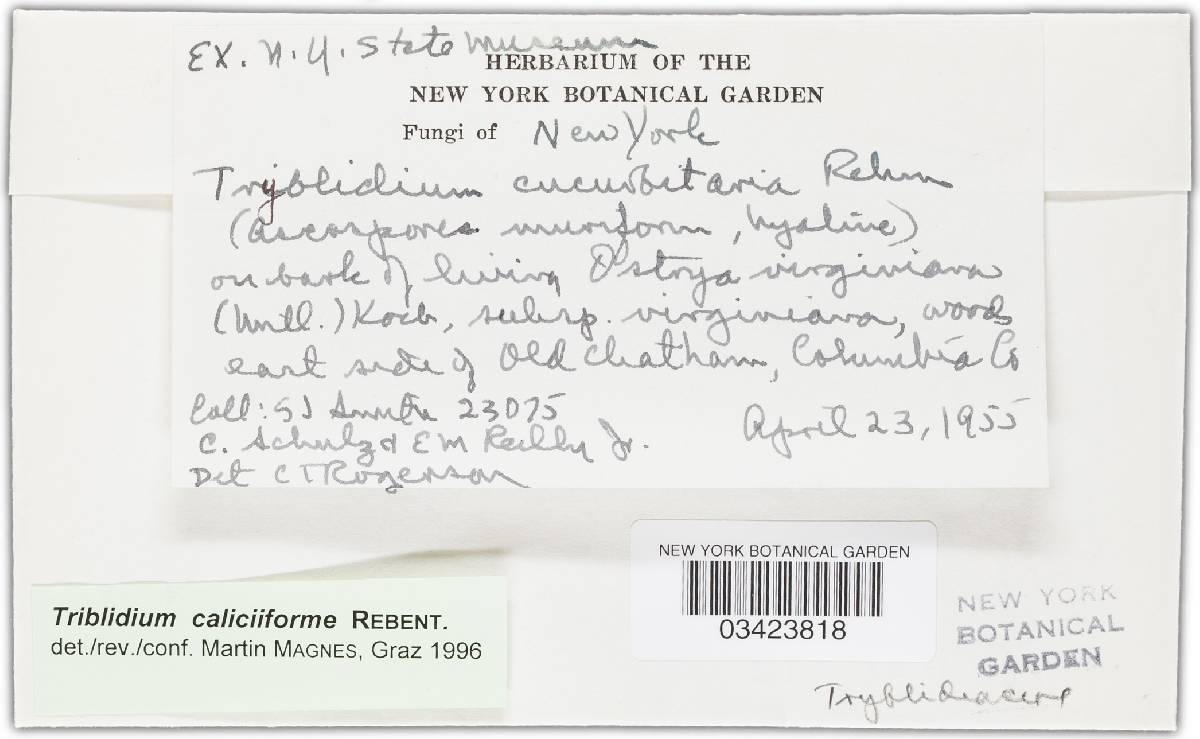 EX. N.Y. State Museum
HERBARIUM OF THE
NEW YORK BOTANICAL GARDEN
Fungi of New York
Tryblidium cucurbitaria Rehm
(ascospores muriform, hyaline)
on bark of living Ostrya virginiana
(Mill.) Koch, subsp. virginiana, woods
east side of Old Chatham, Columbia Co
Coll: SJ Smith 23075
April 23, 1955
C. Schulz & EM Reilly Jr.
Det CT Rogerson
NEW YORK BOTANICAL GARDEN
03423818
Triblidium caliciiforme REBENT.
det./rev./conf. Martin MAGNES, Graz 1996
NEW YORK
BOTANICAL
GARDEN
Tryblidiaceae